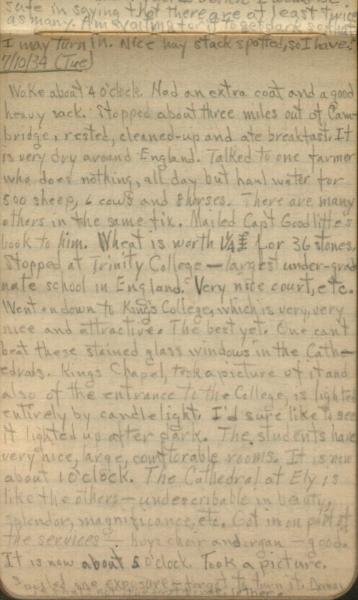 safe in saying that there are at least twice
as many. Am waiting for it to get dark so that
I may turn in. Nice hay stack spotted, so I have.
7/10/34 (Tue)
Woke about 4 o'clock. Had an extra coat and a good
heavy sack. Stopped about three miles out of Cam-
bridge, rested, cleaned-up and ate breakfast. It
is very dry around England. Talked to one farmer
who does nothing, all day but haul water for
500 sheep, 6 cows and 8 horses. There are many
others in the same fix. Mailed Capt Goodliffe's
book to him. Wheat is worth 1/4 £ for 36 stones.
Stopped at Trinity College — largest under-grad
uate school in England. Very nice court, etc.
Went on down to King's College, which is very, very
nice and attractive. The best yet. One can't
beat these stained glass windows in the Cath-
edrals. Kings Chapel, took a picture of it and
also of the entrance to the College, is lighted
entirely by candlelight. I'd sure like to see
it lighted up after dark. The students have
very nice, large, comfortable rooms. It is now
about 1 o'clock. The Cathedral at Ely is
like the others — undescribable in beauty,
splendor, magnificance, etc. Got in on part of
the services — boys choir and organ — good.
It is now about 5 o'clock. Took a picture.
exposure — forgot to turn it.